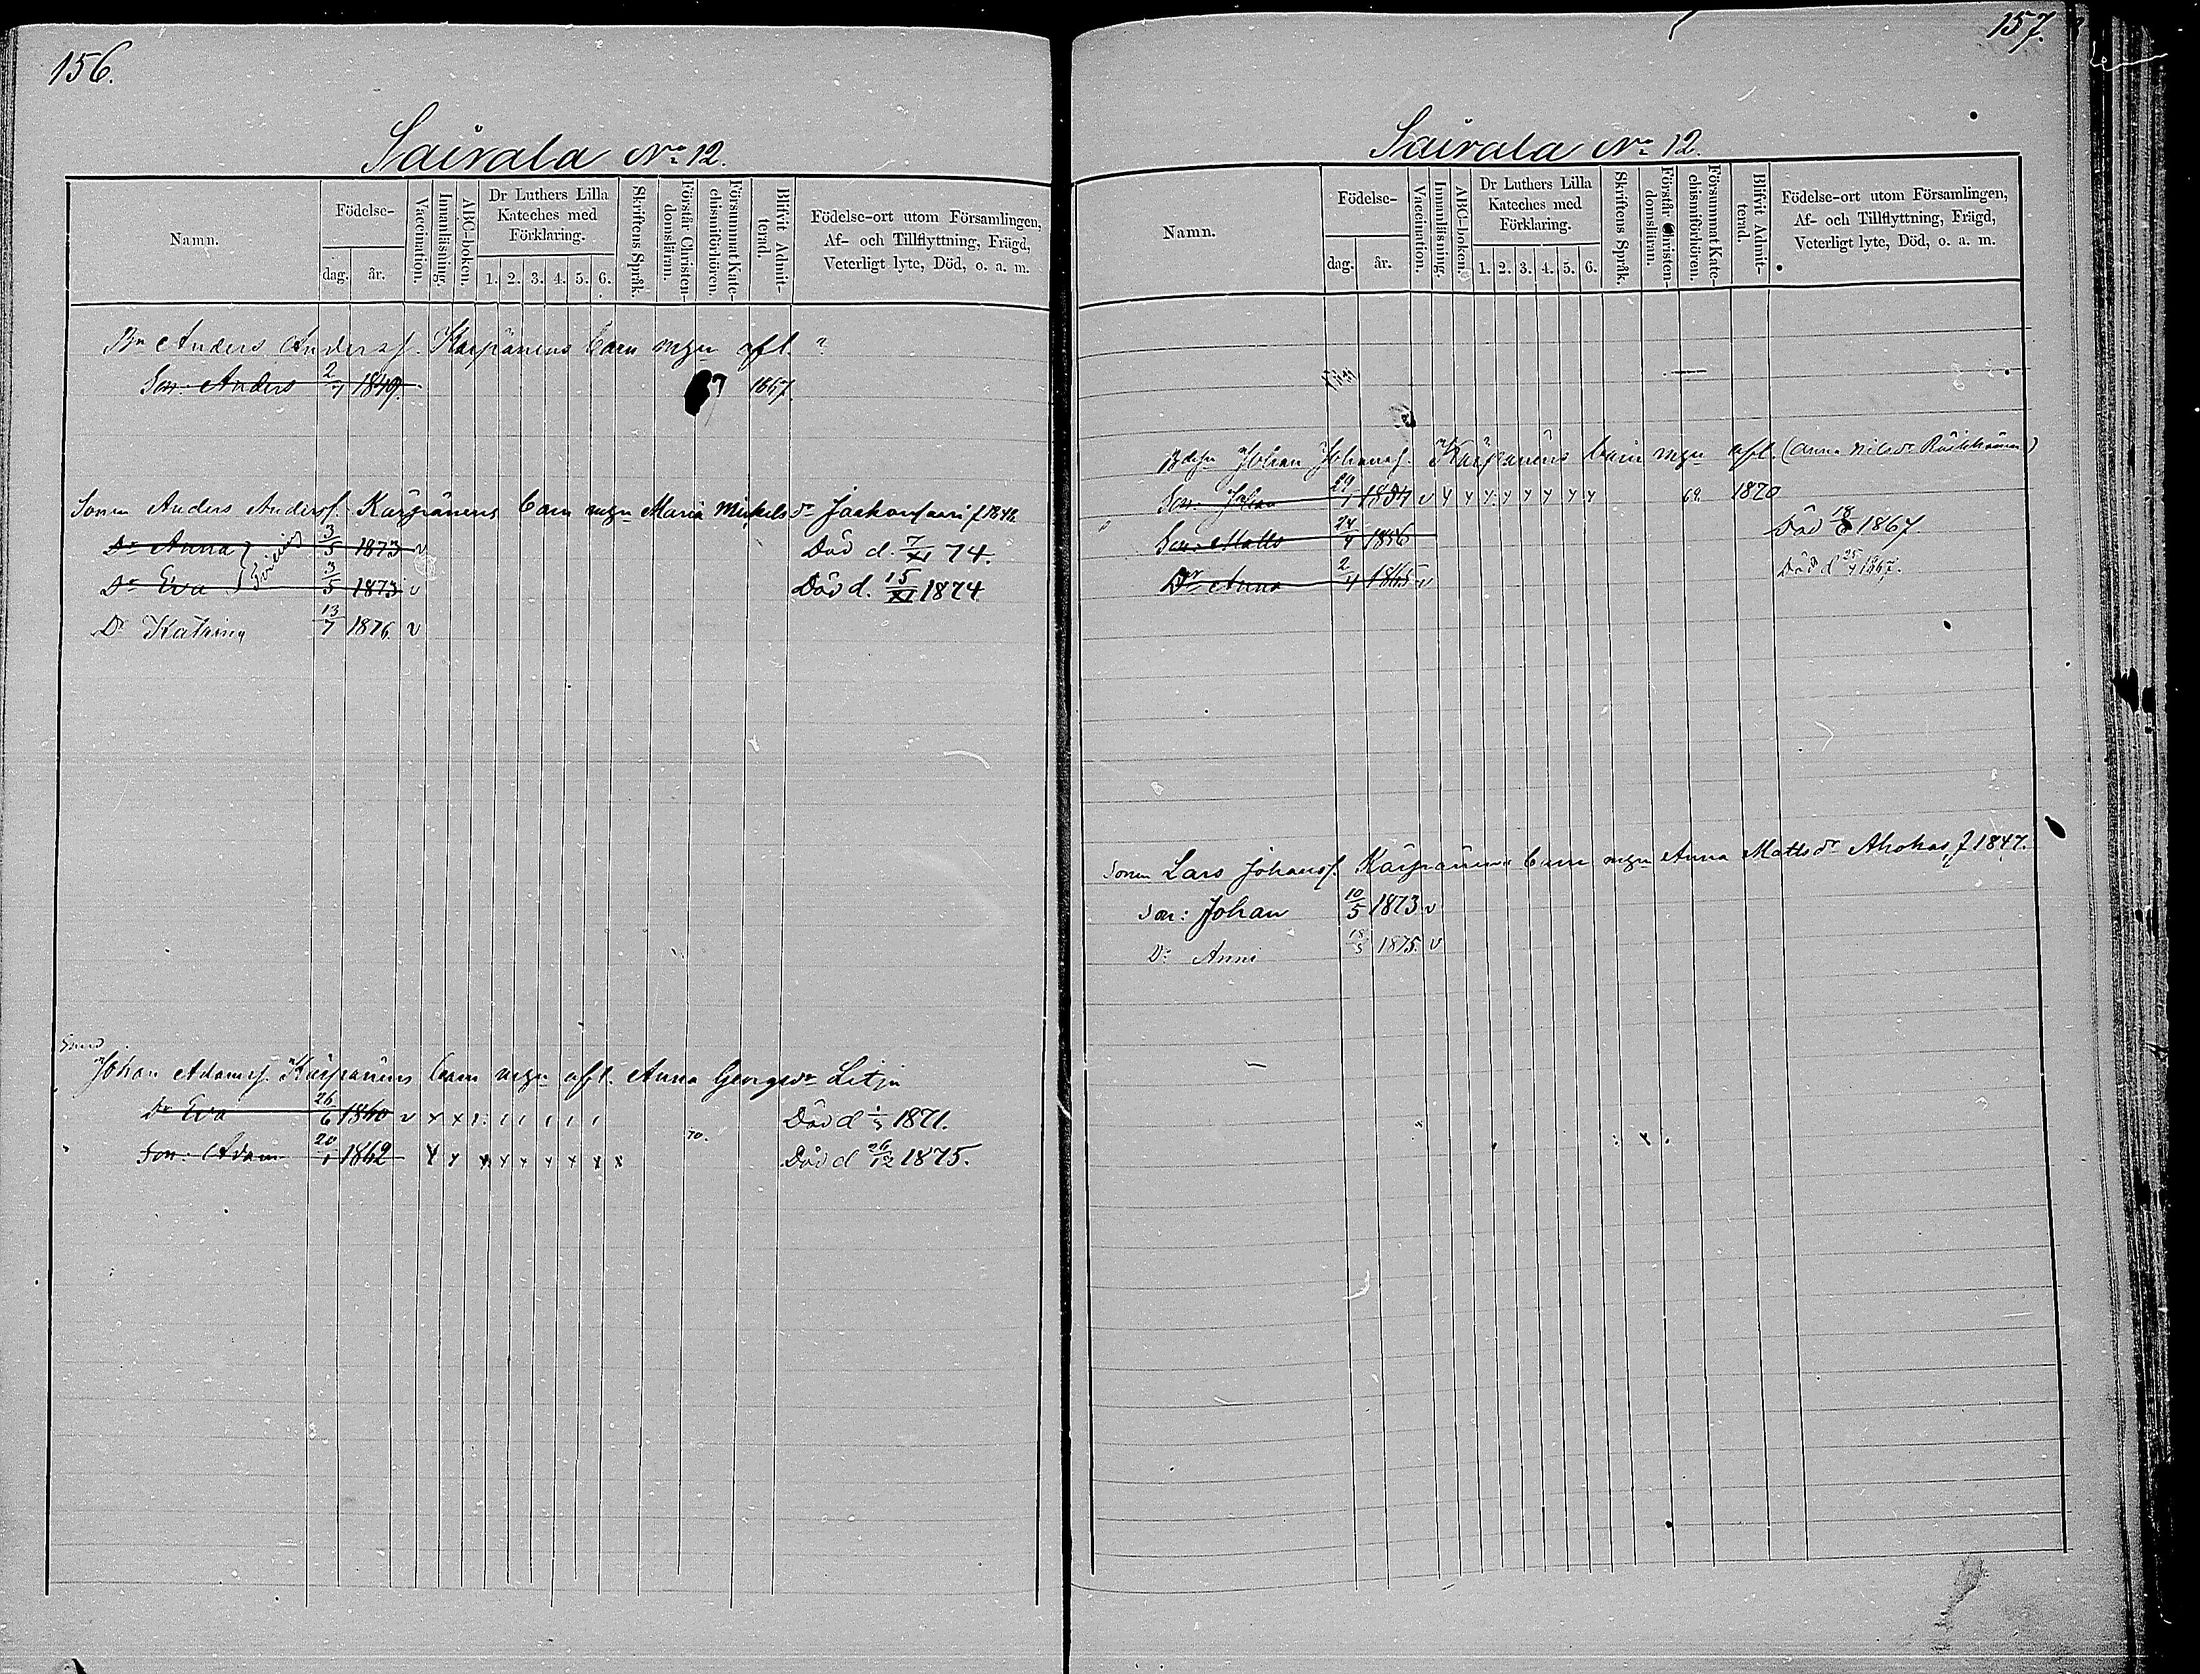 156.
Sairala No 12.
Namn.
Födelse-
dag.
år.
Vaccination.
Innanläsning.
ABC-boken.
Dr Luthers Lilla
Kateches med
Förklaring.
1. 2. 3. 4. 5. 6.
Skriftens Språk.
Förstår Christen-
domsläran.
Försummat Kate-
chismiförhören.
Blifvit Admit-
terad.
Födelse-ort utom Församlingen,
Af- och Tillflyttning, Frägd,
Veterligt lyte, Död, o. a. m.
Bn Anders Anderss. Karpänens barn mgn afl.
Son: Anders 2/7 1849. 1667
Sonen Anders Anderss. Kärpänens barn mgn Maria Mickelsdr Jaakonsaari f 1848
Dr Anna 3/5 1873 v Död d. 7/XI 74.
Dr Eva 3/5 1873 v Död d. 15/XI 1874
Dr Katrina 13/7 1876 v
Johan Adamss. Kärpänens barn mgn afl. Anna Georgsdr Litja
Dr Eva 26/6 1860 v Död d 1/5 1871.
70.
Son: Adam 20/1 1862 Död d 26/12 1875.
157.
Sairala No 12.
Namn.
Födelse-
dag.
år.
Vaccination.
Innanläsning.
ABC-boken.
Dr Luthers Lilla
Kateches med
Förklaring.
1. 2. 3. 4. 5. 6.
Skriftens Språk.
Förstår Christen-
domsläran.
Försummat Kate-
chismiförhören.
Blifvit Admit-
terad.
Födelse-ort utom Församlingen,
Af- och Tillflyttning, Frägd,
Veterligt lyte, Död, o. a. m.
Johan Johanss. Kärpänens barn mgn afl. (Anna Nilsdr
Son: Johan 29/1 1854 v 69. 1870
Son: Matts 24/4 1856 Död 18/8 1867
Dr Anna 2/4 1865 v Död d 25/4 1867.
Sonen Lars Johanss. Kärpänens barn mgn Anna Mattsdr Ahokas, f 1847.
Son: Johan 10/5 1873 v
Dr Anni 18/5 1875. v